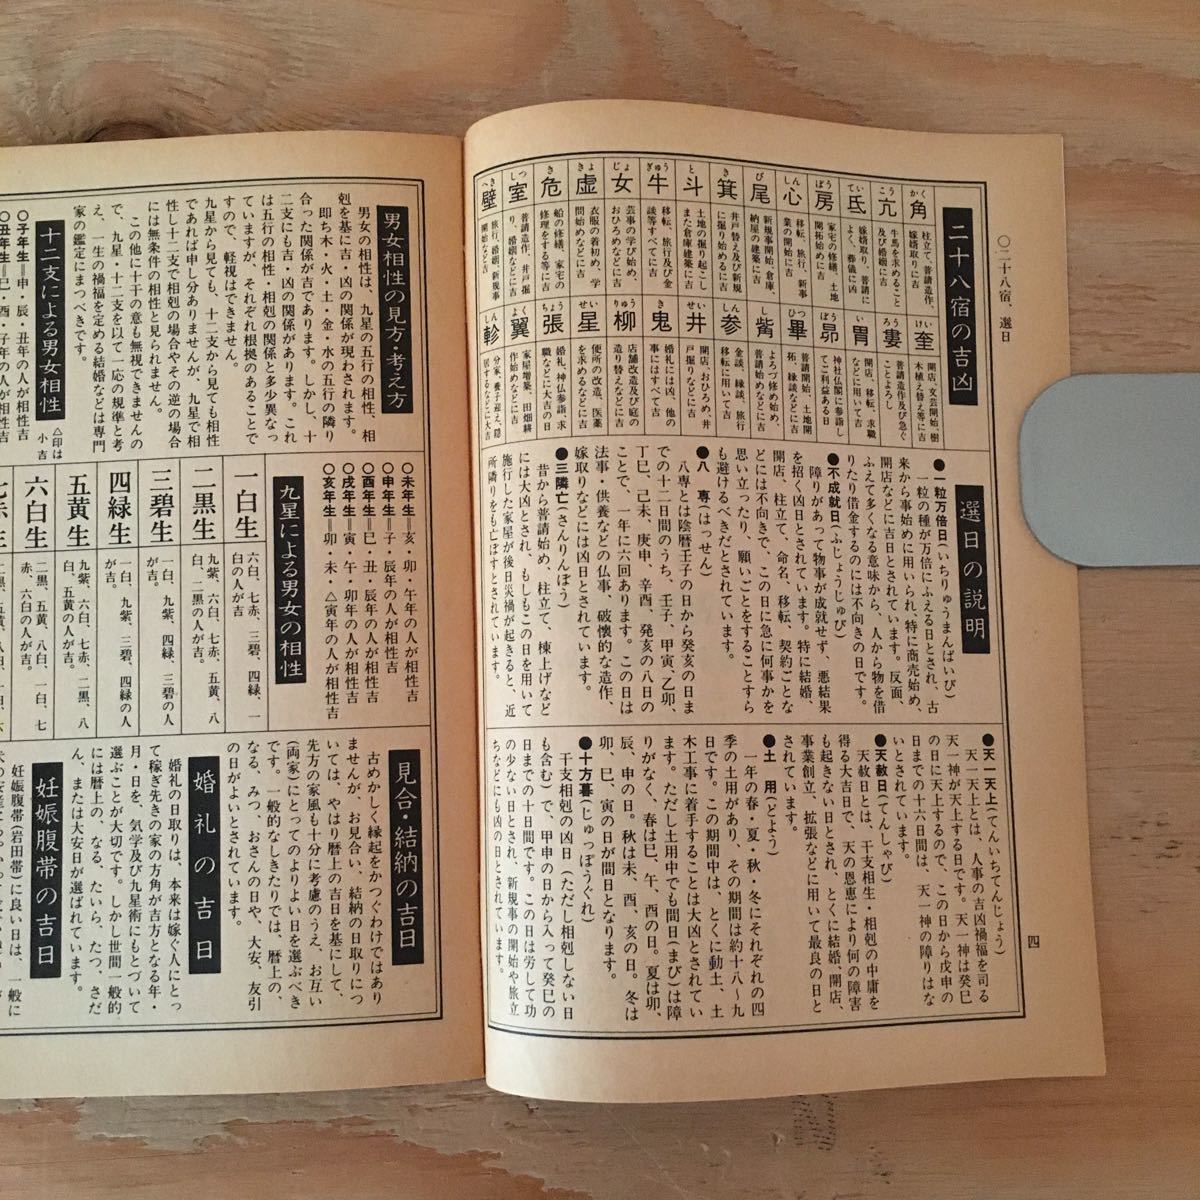 〇二十八宿・選日
四
二十八宿の吉凶
角 かく 柱立て、普請造作、
嫁婿取りに吉
亢 こう 牛馬を求めること
及び婚姻に吉
氐 てい 嫁婿取り、普請に
よく、葬儀に凶
房 ぼう 家宅の修繕、土地
開拓始めに吉
心 しん 移転、旅行、新事
業の開始に吉
尾 び 新規事開始、倉庫、
納屋の建築に吉
箕 き 井戸替え及び新規
に掘り始めるに吉
斗 と 土地の掘り起こし
また倉庫建築に吉
牛 ぎゅう 移転、旅行及び金
談等すべてに吉
女 じょ 芸事の学び始め、
おひろめなどに吉
虚 きょ 衣服の着初め、学
問始めなどに吉
危 き 船の修繕、家宅の
修理をする等に吉
室 しつ 普請造作、井戸掘
り、婚姻などに吉
壁 へき 旅行、婚姻、新規事
開始など吉
奎 けい 開店、文芸開始、樹
木植え替え等に吉
婁 ろう 普請造作及び急ぐ
ことよろし
胃 い 開店、移転、求職
などに用いて吉
昴 ぼう 神社仏閣に参詣し
てご利益ある日
畢 ひつ 普請開始、土地開
拓、縁談などに吉
觜 し よろづ修め始め、
普請始めなどに吉
参 しん 金談、縁談、旅行
移転に用いて吉
井 せい 開店、おひろめ、井
戸掘りなどに吉
鬼 き 婚礼には凶、他の
事にはすべて吉
柳 りゅう 店舗改造及び庭の
造り替えなどに吉
星 せい 便所の改造、医薬
を求めるなどに吉
張 ちょう 婚礼、神仏参詣、求
職などに大吉の日
翼 よく 家屋増築、田畑耕
作始めなどに吉
軫 しん 分家、養子迎え、隠
居するなどに大吉
選日の説明
●一粒万倍日(いちりゅうまんばいび)
一粒の種が万倍にふえる日とされ、古
来から事始めに用いられ、特に商売始め、
開店などに吉日とされています。反面、
ふえて多くなる意味から、人から物を借
りたり借金するのには不向きの日です。
●不成就日(ふじょうじゅび)
障りがあって物事が成就せず、悪結果
を招く凶日とされています。特に結婚、
開店、柱立て、命名、移転、契約ごとな
どには不向きで、この日に急に何事かを
思い立ったり、願いごとをすることすら
も避けるべきだとされています。
●八　専(はっせん)
八専とは陰暦壬子の日から癸亥の日ま
での十二日間のうち、壬子、甲寅、乙卯、
丁巳、己未、庚申、辛酉、癸亥の八日の
ことで、一年に六回あります。この日は
法事・供養などの仏事、破壊的な造作、
嫁取りなどには凶日とされています。
●三隣亡(さんりんぼう)
昔から普請始め、柱立て、棟上げなど
には大凶とされ、もしもこの日を用いて
施行した家屋が後日災禍が起きると、近
所隣りをも亡ぼすとされています。
●天一天上(てんいちてんじょう)
天一天上とは、人事の吉凶禍福を司る
天一神が天上する日です。天一神は癸巳
の日に天上するので、この日から戊申の
日までの十六日間は、天一神の障りはな
いとされています。
●天赦日(てんしゃび)
天赦日とは、干支相生・相剋の中庸を
得る大吉日で、天の恩恵により何の障害
も起きない日とされ、とくに結婚、開店、
事業創立、拡張などに用いて最良の日と
されています。
●土　用(どよう)
一年の春・夏・秋・冬にそれぞれの四
季の土用があり、その期間は約十八〜九
日です。この期間中は、とくに動土、土
木工事に着手することは大凶とされてい
ます。ただし土用中でも間日(まび)は障
りがなく、春は巳、午、酉の日。夏は卯、
辰、申の日。秋は未、酉、亥の日。冬は
卯、巳、寅の日が間日となります。
●十方暮(じゅっぽうぐれ)
干支相剋の凶日(ただし相剋しない日
も含む)で、甲申の日から入って癸巳の
日までの十日間です。この日は労して功
の少ない日とされ、新規事の開始や旅立
ちなどにも凶の日とされています。
男女相性の見方・考え方
男女の相性は、九星の五行の相性、相
剋を基に吉・凶の関係が現わされます。
即ち木・火・土・金・水の五行の隣り
合った関係が吉であります。しかし、十
二支にも吉・凶の関係があります。これ
は五行の相性・相剋の関係と多少異なっ
ていますが、それぞれ根拠のあることで
すので、軽視はできません。
九星から見ても、十二支から見ても相性
であれば申し分ありませんが、九星で相
性し十二支で相剋の場合やその逆の場合
には無条件の相性と見られません。
この他に十干の意も無視できませんの
で、九星・十二支を以て一応の規準と考
え、一生の禍福を定める結婚などは専門
家の鑑定にまつべきです。
十二支による男女相性
△印は
小吉
〇子年生＝申・辰・丑年の人が相性吉
〇丑年生＝巳・酉・子年の人が相性吉
〇未年生＝亥・卯・午年の人が相性吉
〇申年生＝子・辰年の人が相性吉
〇酉年生＝丑・辰年の人が相性吉
〇戌年生＝寅・午・卯年の人が相性吉
〇亥年生＝卯・未・△寅年の人が相性吉
九星による男女の相性
一白生 六白、七赤、三碧、四緑、一
白の人が吉
二黒生 九紫、六白、七赤、五黄、八
白、二黒の人が吉。
三碧生 一白、九紫、四緑、三碧の人
が吉。
四緑生 一白、九紫、三碧、四緑の人
が吉。
五黄生 九紫、六白、七赤、二黒、八
白、五黄の人が吉。
六白生 二黒、五黄、八白、一白、七
赤、六白の人が吉。
七赤生 二黒、五黄、八白、一白、六
見合・結納の吉日
古めかしく縁起をかつぐわけではあり
ませんが、お見合い、結納の日取りにつ
いては、やはり暦上の吉日を基にして、
先方の家風も十分に考慮のうえ、お互い
(両家)にとってのよりよい日を選ぶべき
です。一般的なしきたりでは、暦上の、
なる、みつ、おさんの日や、大安、友引
の日がよいとされています。
婚礼の吉日
婚礼の日取りは、本来は嫁ぐ人にとっ
て稼ぎ先きの家の方角が吉方となる年・
月・日を、気学及び九星術にもとづいて
選ぶことが大切です。しかし世間一般的
には暦上の、なる、たいら、たつ、さだ
ん、または大安日が選ばれています。
妊娠腹帯の吉日
妊娠腹帯(岩田帯)に良い日は、一般に